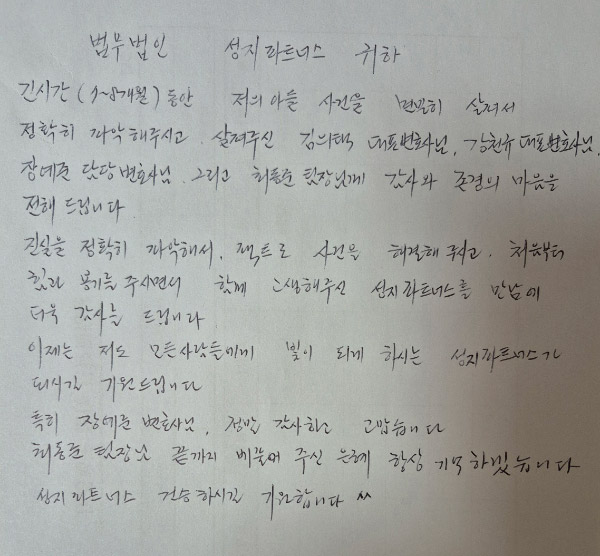 법무법인 성지파트너스 귀하
긴시간 (7~8개월) 동안 저의 아들 사건을 면밀히 살펴서
정확히 파악해주시고, 살펴주신 김의택 대표변호사님, 강천규 대표변호사님,
장예준 담당변호사님, 그리고 최동준 팀장님께 감사와 존경의 마음을
전해 드립니다
진실을 정확히 파악해서, 팩트로 사건을 해결해 주시고, 처음부터
힘과 용기를 주시면서 함께 고생해주신 성지파트너스를 만남에
더욱 감사를 드립니다
이제는 저도 모든사람들에게 빛이 되게 하시는 성지파트너스가
되시길 기원드립니다
특히 장예준 변호사님, 정말 감사하고 고맙습니다
최동준 팀장님 끝까지 베풀어 주신 은혜 항상 기억하겠습니다
성지파트너스 건승하시길 기원합니다 ^^